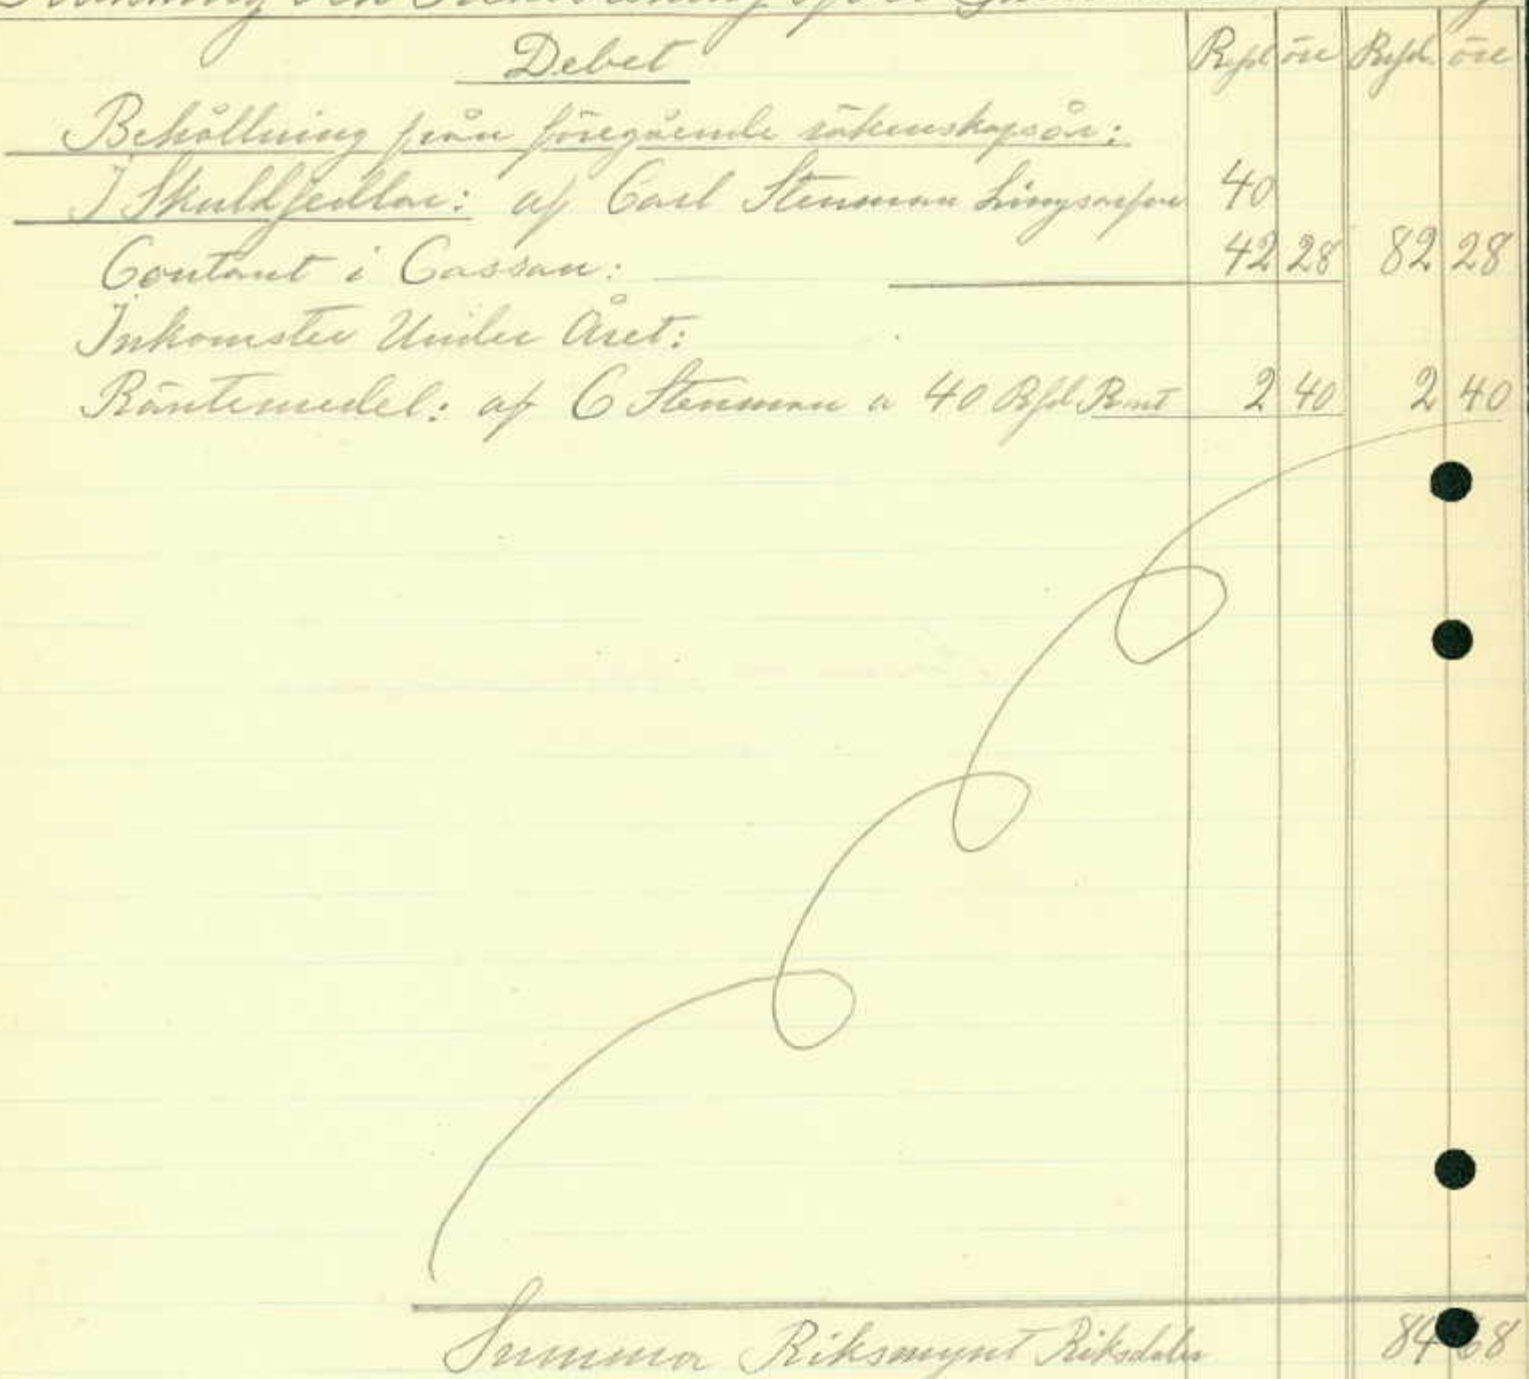 Debet Rgsd öre Rgsd. öre
Behållning från föregående räkenskapsår:
I Skuldsedlar: af Carl Stenman 40
Contant i Cassan: 42 28 82 28
Inkomster Under Året:
Räntemedel: af C Stenman a 40 Rgsd Rmt 2 40 2 40
Summa Riksmynt Riksdaler 84 68